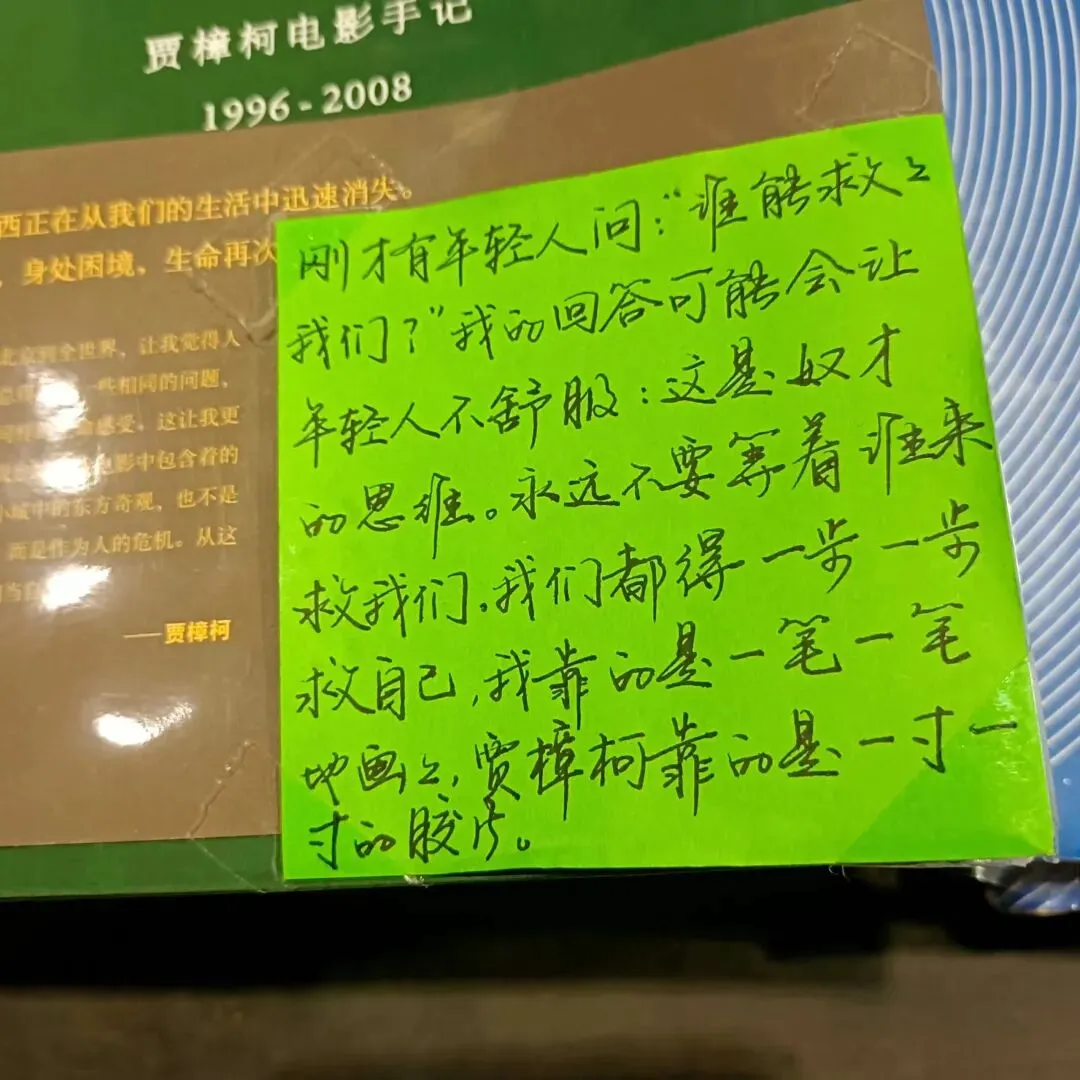 贾樟柯电影手记
1996-2008
西正在从我们的生活中迅速消失。
，身处困境、生命再次
全世界、让我觉得人
一些相同的问题，
感受。这让我更
电影中包含着的
小城中的东方奇观，也不是
而是作为人的危机。从这
——贾樟柯
刚才有年轻人问：“谁能救之
我们？”我的回答可能会让
年轻人不舒服：这是奴才
的思维。永远不要等着谁来
救我们，我们都得一步一步
救自己，我靠的是一笔一笔
地画之，贾樟柯靠的是一寸一
寸的胶片。